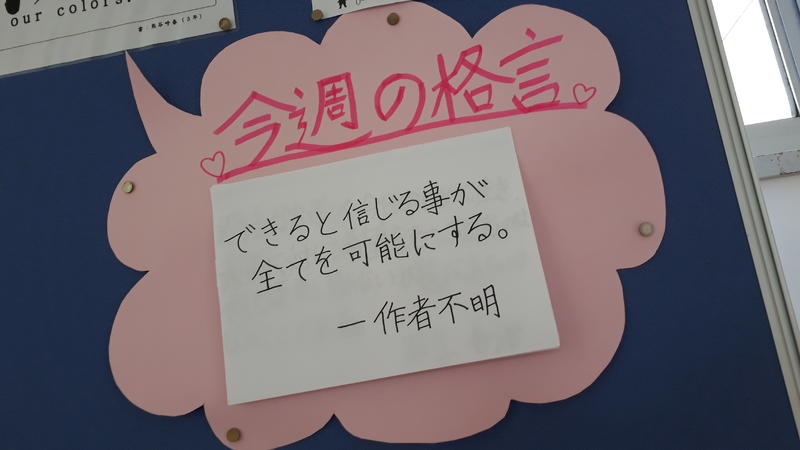 our colors.
今週の格言
できると信じる事が
全てを可能にする。
ー作者不明